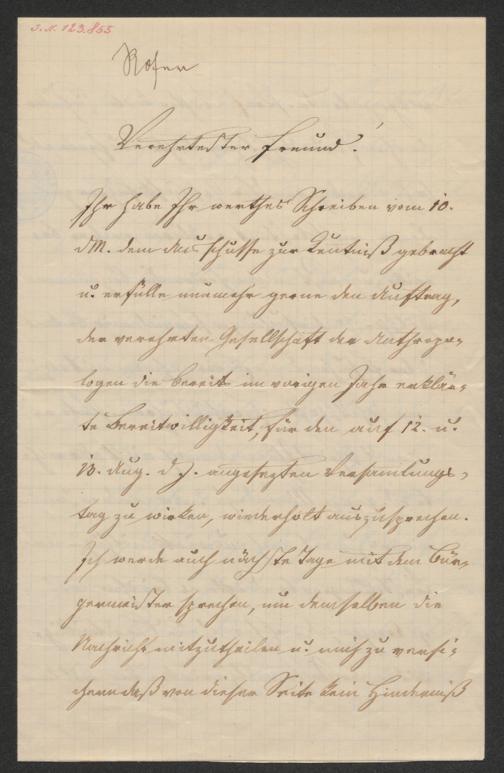 J.N. 123.855
Verehrtester Freund!
Ich habe Ihr werthes Schreiben vom 10.
d M. dem Ausschusse zur Kentniß gebracht
u. erfülle nunmehr gerne den Auftrag,
der verehrten Gesellschaft der Anthropo-
logen die bereits im vorigen Jahr erklär-
te Bereitwilligkeit, für den auf 12. u.
13. Aug. d. J. angesezten Versamlungs-
tag zu wirken, wiederholt auszusprechen.
Ich werde auch nächste Tage mit dem Bür-
germeister sprechen, um demselben die
Nachricht mitzutheilen u. mich zu versi-
chern daß von dieser Seite kein Hinderniß